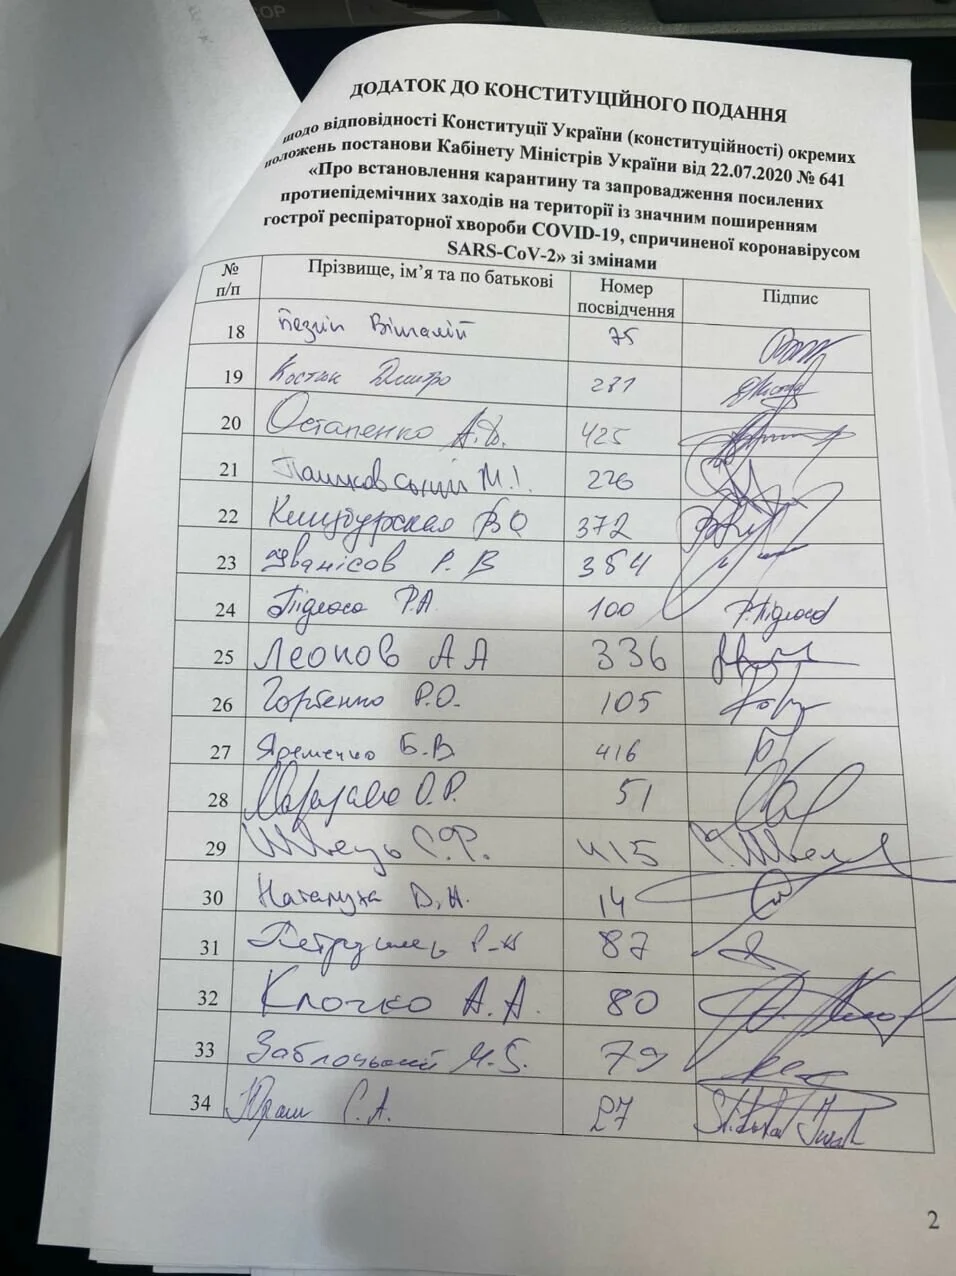 ДОДАТОК ДО КОНСТИТУЦІЙНОГО ПОДАННЯ
щодо відповідності Конституції України (конституційності) окремих
положень постанови Кабінету Міністрів України від 22.07.2020 № 641
«Про встановлення карантину та запровадження посилених
протиепідемічних заходів на території із значним поширенням
гострої респіраторної хвороби COVID-19, спричиненої коронавірусом
SARS-CoV-2» зі змінами
№ п/п Прізвище, ім’я та по батькові Номер посвідчення Підпис
18 Безгін Віталій 75
19 Костюк Дмитро 281
20 Остапенко А.Д. 425
21 Пашковський М.І. 226
22 В О 372
23 Іванісов Р. В 384
24 Підласа Р.А. 100 Р.Підласа
25 Леонов А А 336
26 Горбенко Р.О. 105
27 Яременко Б.В 416
28 О.Р. 51
29 Швець С.Ф. 415
30 Наталуха Д.А. 14
31 Петруняк 87
32 Клочко А.А. 80
33 Заблоцький М.Б. 79
34 Юраш С.А. 27
2